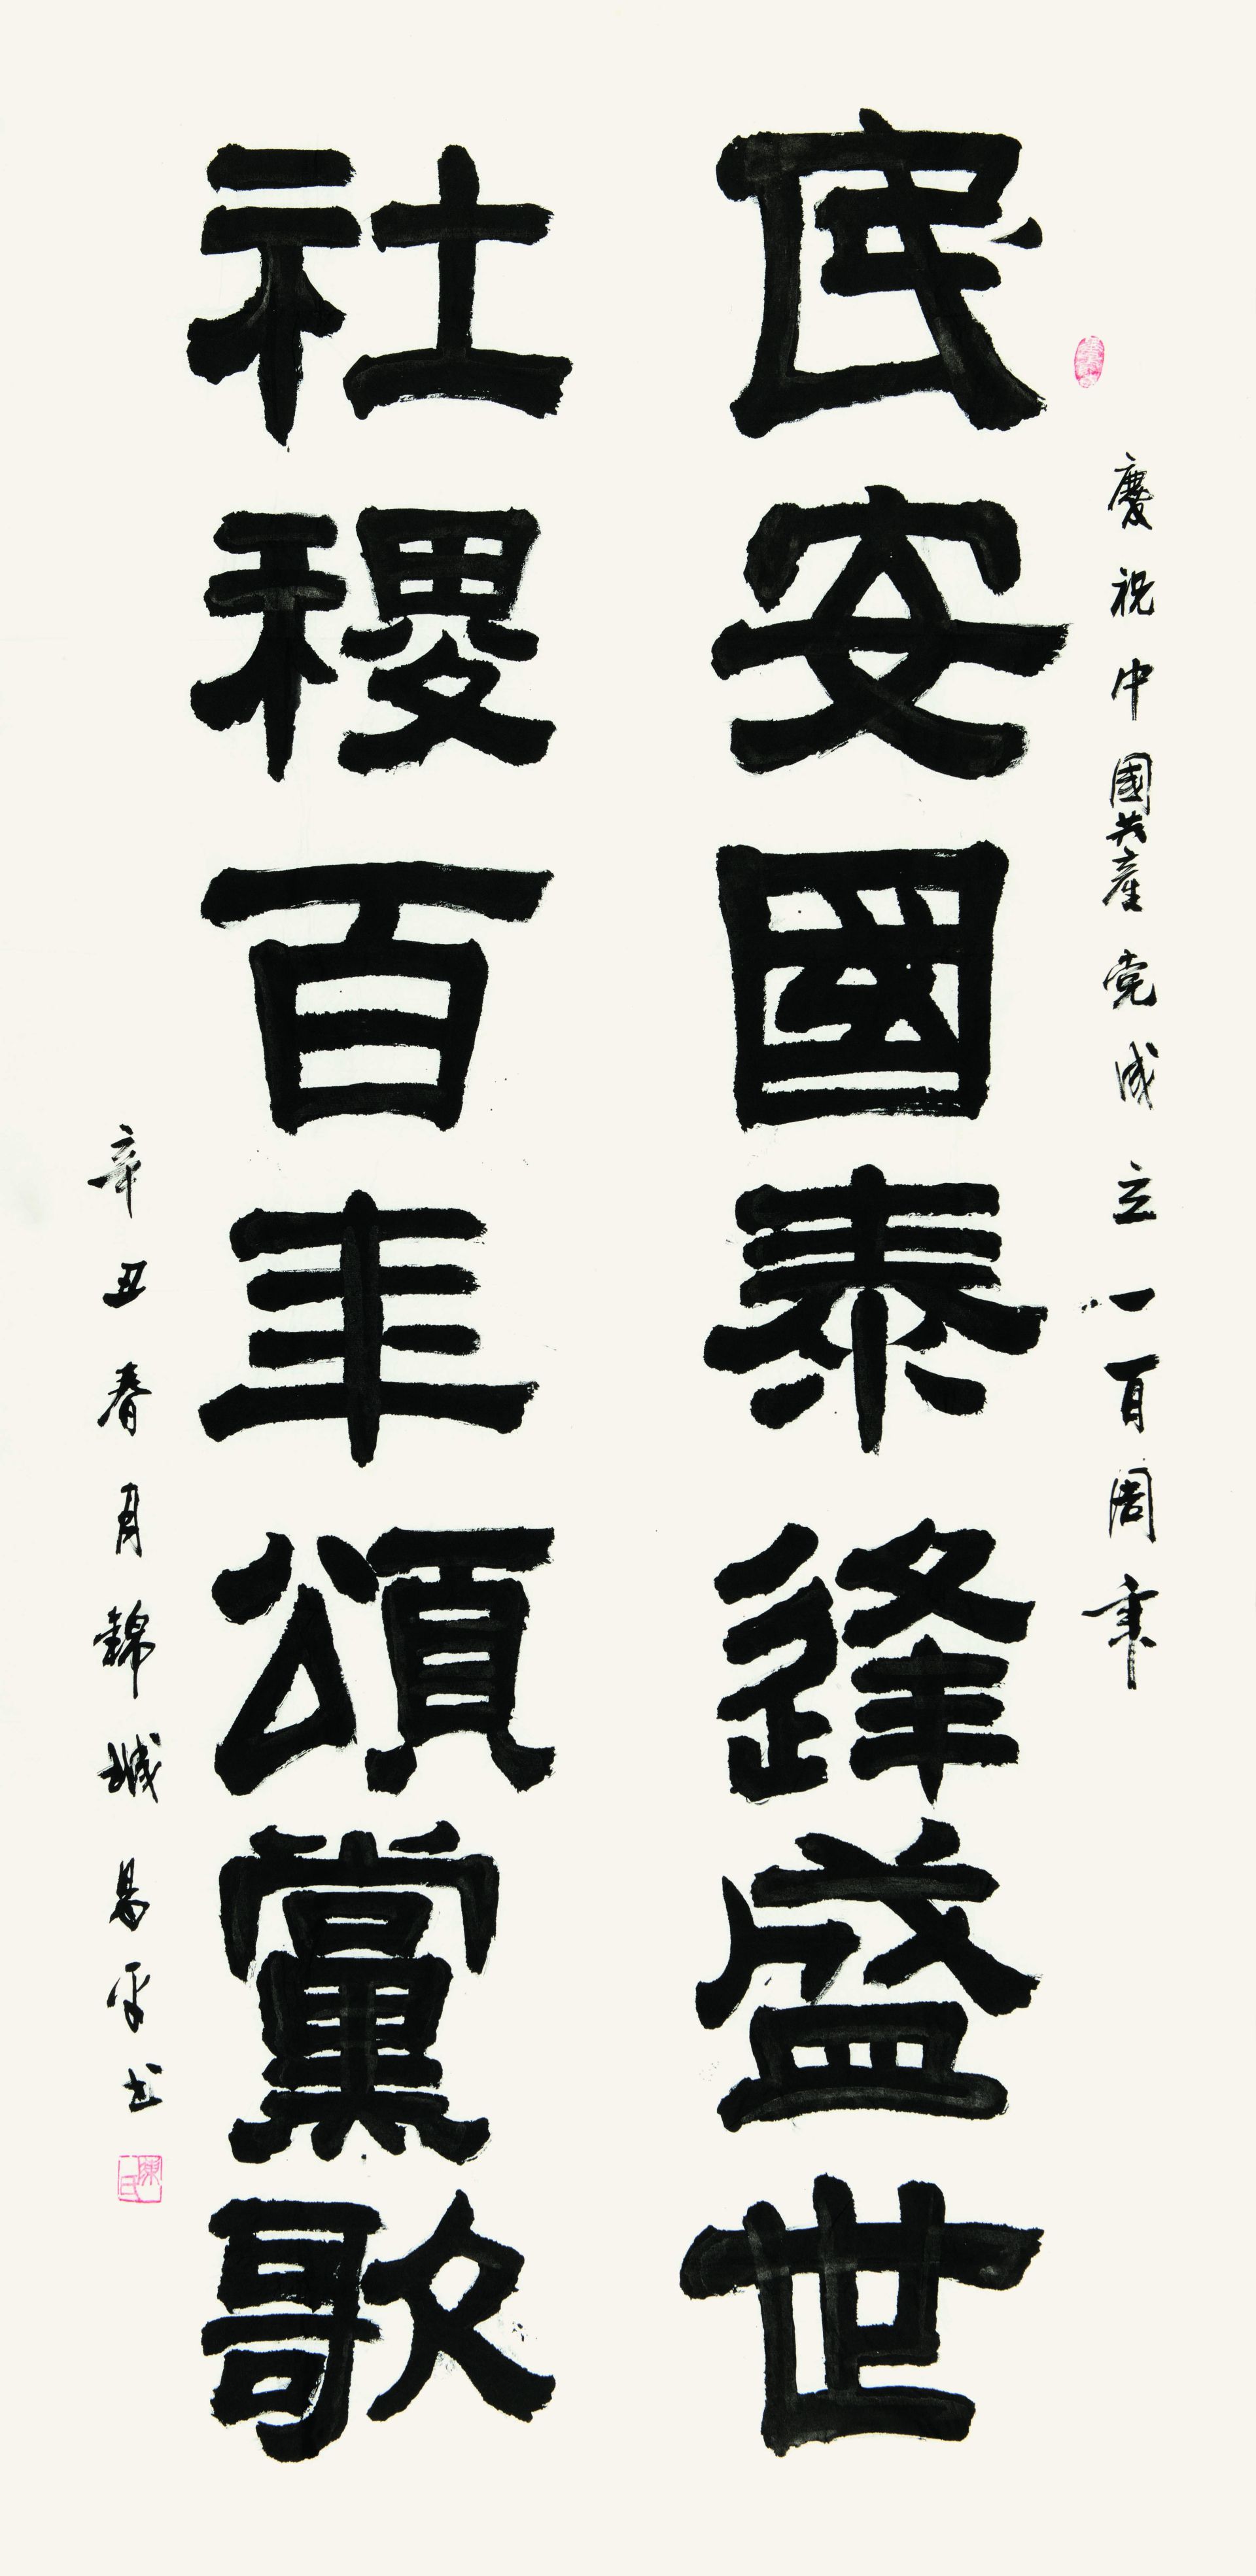 慶祝中國共產党成立一百周年
民安國泰逢盛世
社稷百年頌黨歌
辛丑春月錦城易平书